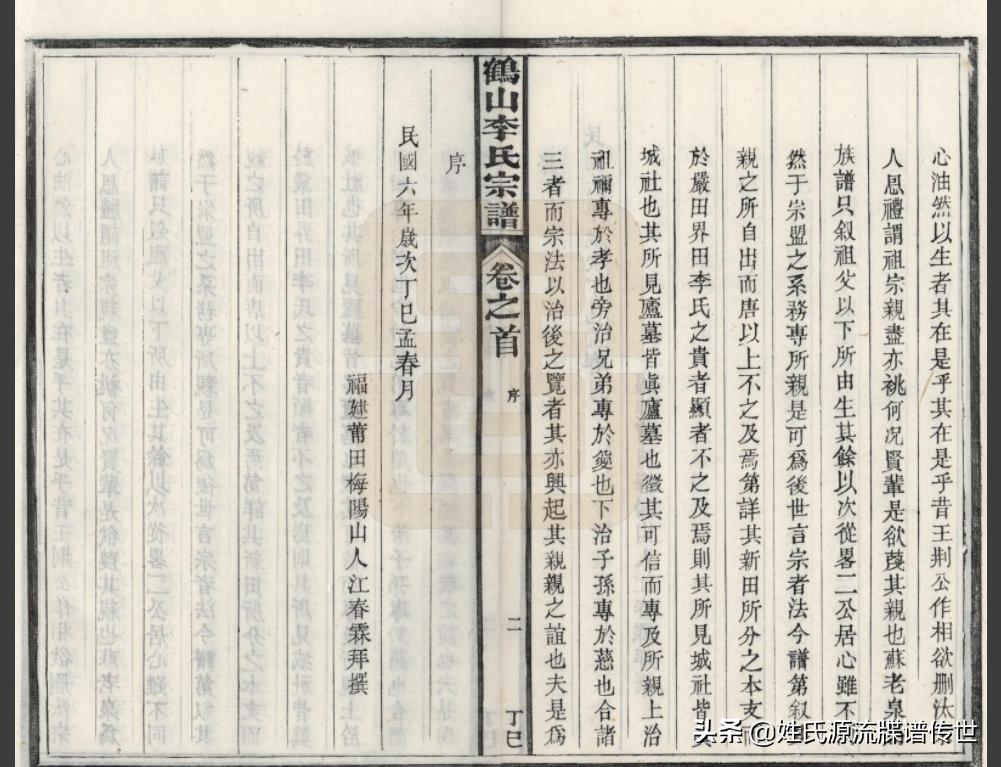 心油然以生者其在是乎其在是乎昔王荆公作相欲删汰
人恩禮謂祖宗親盡亦祧何況賢輩是欲薄其親也蘇老泉
族譜只叙祖父以下所由生其餘以次從畧二公居心雖不
然于宗盟之系務専所親是可為後世言宗者法今譜第叙
親之所自出而唐以上不之及焉第詳其新田所分之本支而
於嚴田界田李氏之貴者顯者不之及焉則其所見城社皆
城社也其所見廬墓皆真廬墓也徵其可信而專及所親上治
祖禰專於孝也旁治兄弟專於愛也下治子孫專於慈也合諸
三者而宗法以治後之覽者其亦興起其親親之誼也夫是為
鶴山李氏宗譜
卷之首
序
二
丁巳
序
民國六年歲次丁巳孟春月
福建莆田梅陽山人江春霖拜撰
头条 @姓氏源流牒谱传世